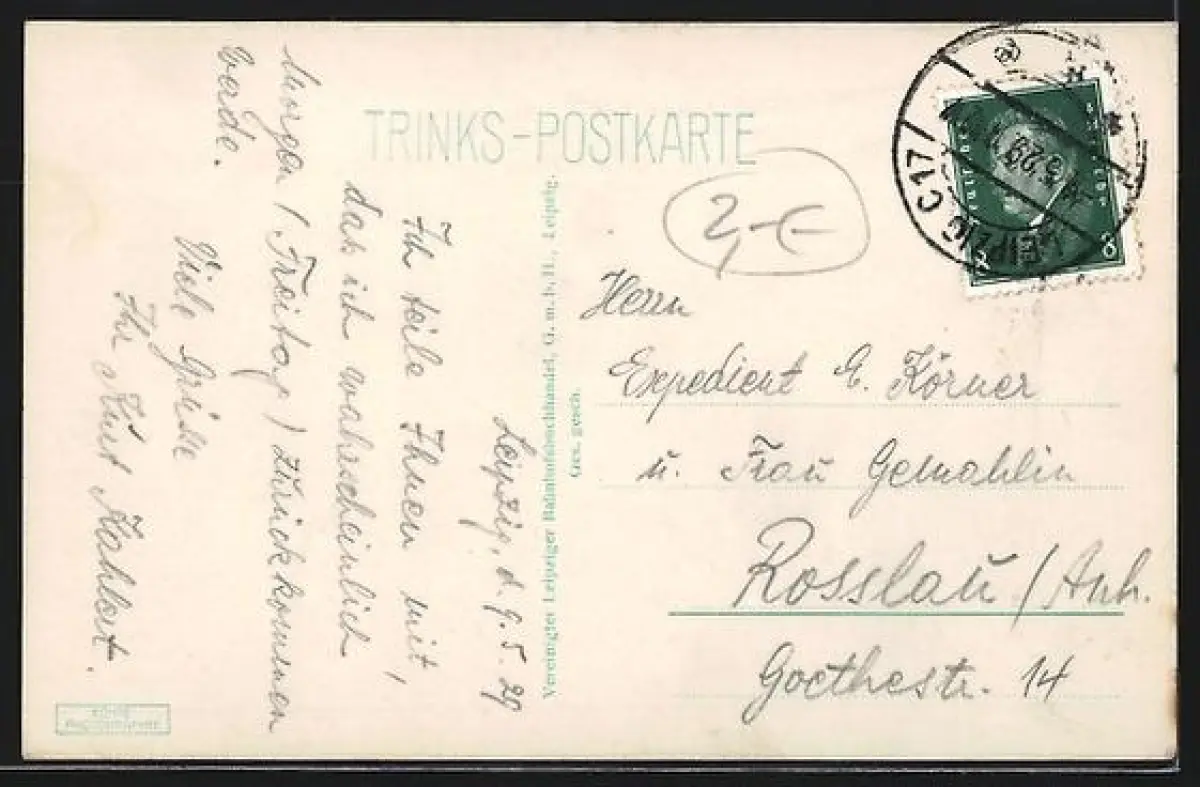 TRINKS-POSTKARTE
Leipzig, d. 9. 5. 29
Ich teile Ihnen mit,
das ich wahrscheinlich
Morgen (Freitag) zurückkommen
werde.
Viele Grüsse
Ihr Kurt Kahlert.
Vereinigter Leipziger Bahnhofsbuchhandel, G. m. b. H., Leipzig.
Ges. gesch.
LEIPZIG C 17
5.29
8
2,-€
Herrn
Expedient E. Körner
u. Frau Gemahlin
Rosslau / Anh.
Goethestr. 14